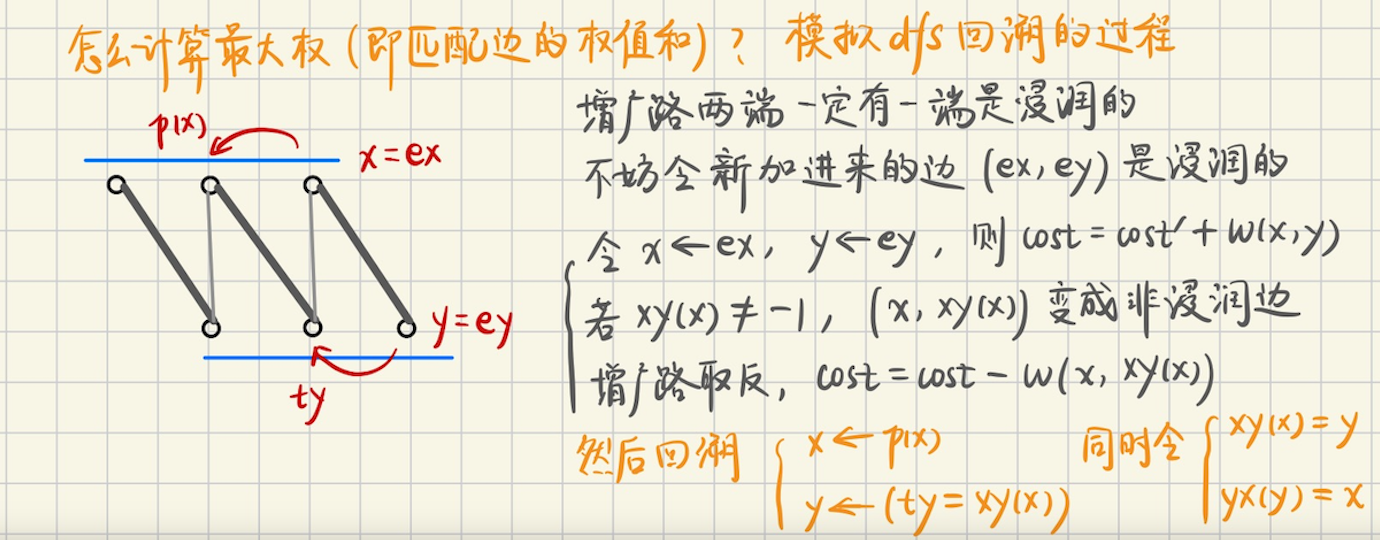 怎么计算最大权（即匹配边的权值和）？ 模拟dfs回溯的过程
p(x)
x=ex
y=ey
ty
增广路两端一定有一端是浸润的
不妨令新加进来的边 (ex, ey) 是浸润的
令 x←ex, y←ey, 则 cost = cost' + w(x,y)
若 xy(x) ≠ -1, (x, xy(x)) 变成非浸润边
增广路取反, cost = cost - w(x, xy(x))
然后回溯 { x ← p(x)
y ← (ty = xy(x))
同时令 { xy(x) = y
yx(y) = x